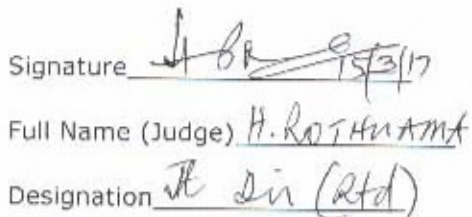 Signature 15/3/17
Full Name (Judge) H. ROTHUAMA
Designation Jt Dir (Rtd)